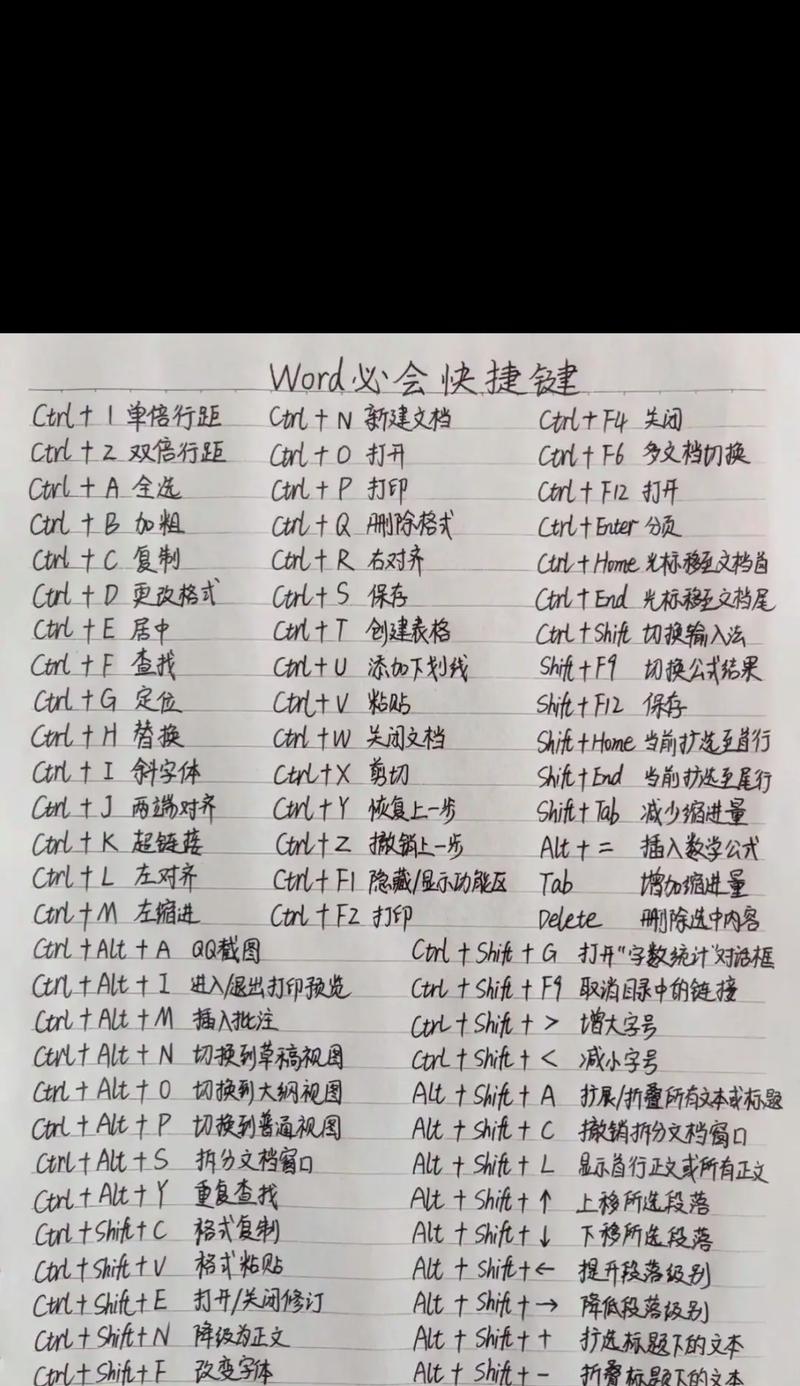 Word必会快捷键
Ctrl+1 单倍行距 Ctrl+N 新建文档 Ctrl+F4 关闭
Ctrl+2 双倍行距 Ctrl+O 打开 Ctrl+F6 多文档切换
Ctrl+A 全选 Ctrl+P 打印 Ctrl+F12 打开
Ctrl+B 加粗 Ctrl+Q 删除格式 Ctrl+Enter 分页
Ctrl+C 复制 Ctrl+R 右对齐 Ctrl+Home 光标移至文档首
Ctrl+D 更改格式 Ctrl+S 保存 Ctrl+End 光标移至文档尾
Ctrl+E 居中 Ctrl+T 创建表格 Ctrl+Shift 切换输入法
Ctrl+F 查找 Ctrl+U 添加下划线 Shift+F9 切换公式结果
Ctrl+G 定位 Ctrl+V 粘贴 Shift+F12 保存
Ctrl+H 替换 Ctrl+W 关闭文档 Shift+Home 当前扩选至首行
Ctrl+I 斜字体 Ctrl+X 剪切 Shift+End 当前扩选至尾行
Ctrl+J 两端对齐 Ctrl+Y 恢复上一步 Shift+Tab 减少缩进量
Ctrl+K 超链接 Ctrl+Z 撤销上一步 Alt+= 插入数学公式
Ctrl+L 左对齐 Ctrl+F1 隐藏/显示功能区 Tab 增加缩进量
Ctrl+M 左缩进 Ctrl+F2 打印 Delete 删除选中内容
Ctrl+Alt+A QQ截图 Ctrl+Shift+G 打开“字数统计”对话框
Ctrl+Alt+I 进入/退出打印预览 Ctrl+Shift+F9 取消目录中的链接
Ctrl+Alt+M 插入批注 Ctrl+Shift+> 增大字号
Ctrl+Alt+N 切换到草稿视图 Ctrl+Shift+< 减小字号
Ctrl+Alt+O 切换到大纲视图 Alt+Shift+A 扩展/折叠所有文本或标题
Ctrl+Alt+P 切换到普通视图 Alt+Shift+C 撤销拆分文档窗口
Ctrl+Alt+S 拆分文档窗口 Alt+Shift+L 显示首行正文或所有正文
Ctrl+Alt+Y 重复查找 Alt+Shift+↑ 上移所选段落
Ctrl+Shift+C 格式复制 Alt+Shift+↓ 下移所选段落
Ctrl+Shift+V 格式粘贴 Alt+Shift+← 提升段落级别
Ctrl+Shift+E 打开/关闭修订 Alt+Shift+→ 降低段落级别
Ctrl+Shift+N 降级为正文 Alt+Shift++ 扩选标题下的文本
Ctrl+Shift+F 改变字体 Alt+Shift+- 折叠标题下的文本